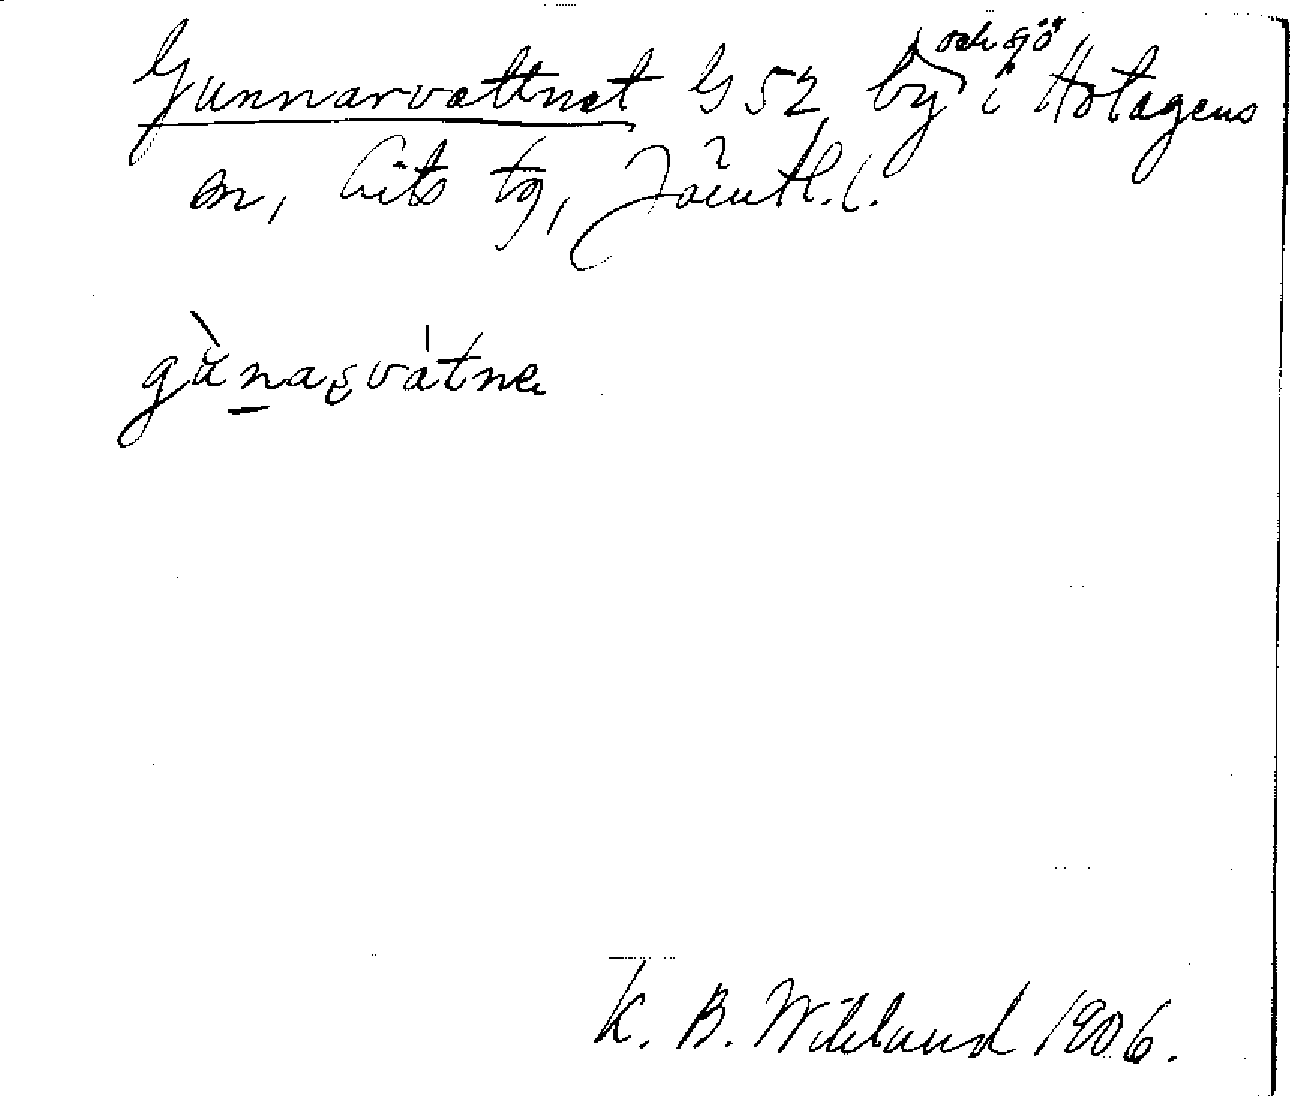 Gunnarvattnet G 52 by och sjö i Hotagens
sn, Lits tg, Jämtl. l.
gùnaʂvátnə
K. B. Wiklund 1906.